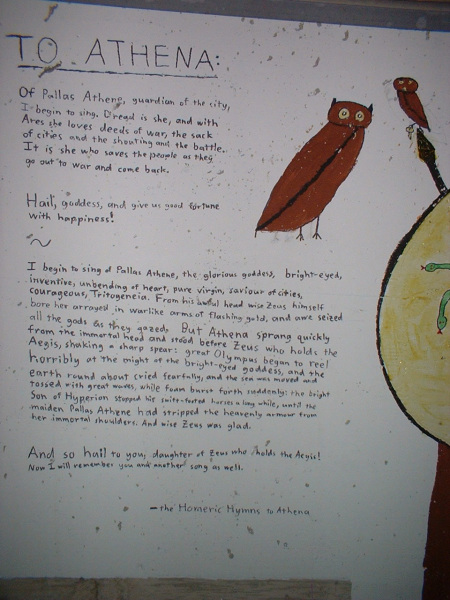 TO ATHENA:
Of Pallas Athene, guardian of the city,
I begin to sing. Dread is she, and with
Ares she loves deeds of war, the sack
of cities and the shouting and the battle.
It is she who saves the people as they
go out to war and come back.
Hail, goddess, and give us good fortune
with happiness!
~
I begin to sing of Pallas Athene, the glorious goddess, bright-eyed,
inventive, unbending of heart, pure virgin, saviour of cities,
courageous, Tritogeneia. From his awful head wise Zeus himself
bore her arrayed in warlike arms of flashing gold, and awe seized
all the gods as they gazed. But Athena sprang quickly
from the immortal head and stood before Zeus who holds the
Aegis, shaking a sharp spear: great Olympus began to reel
horribly at the might of the bright-eyed goddess, and the
earth round about cried fearfully, and the sea was moved and
tossed with great waves, while foam burst forth suddenly: the bright
Son of Hyperion stopped his swift-footed horses a long while, until the
maiden Pallas Athene had stripped the heavenly armour from
her immortal shoulders. And wise Zeus was glad.
And so hail to you, daughter of Zeus who holds the Aegis!
Now I will remember you and another song as well.
— the Homeric Hymns to Athena